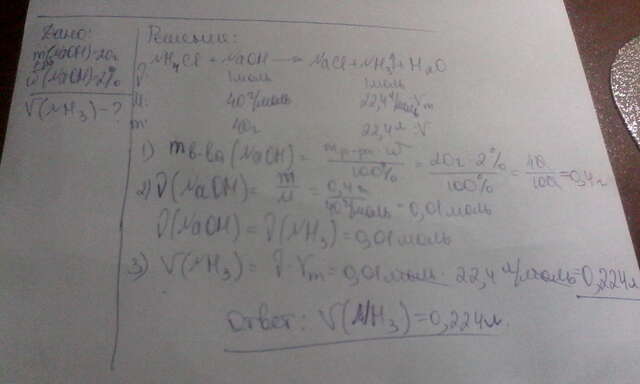 Дано:
m(NaOH)=20г
ω(NaOH)=2%
V(NH3)-?
Решение:
NH4Cl + NaOH → NaCl + NH3↑ + H2O
ν: 1моль 1моль
M: 40г/моль 22,4л/моль Vm
m: 40г 22,4л :V
1) mв-ва (NaOH) = mр-ра · ω / 100% = 20г · 2% / 100% = 40 / 100 = 0,4г
2) ν(NaOH) = m / M = 0,4г / 40г/моль = 0,01моль
ν(NaOH) = ν(NH3) = 0,01моль
3) V(NH3) = ν · Vm = 0,01моль · 22,4л/моль = 0,224л
Ответ: V(NH3) = 0,224л.